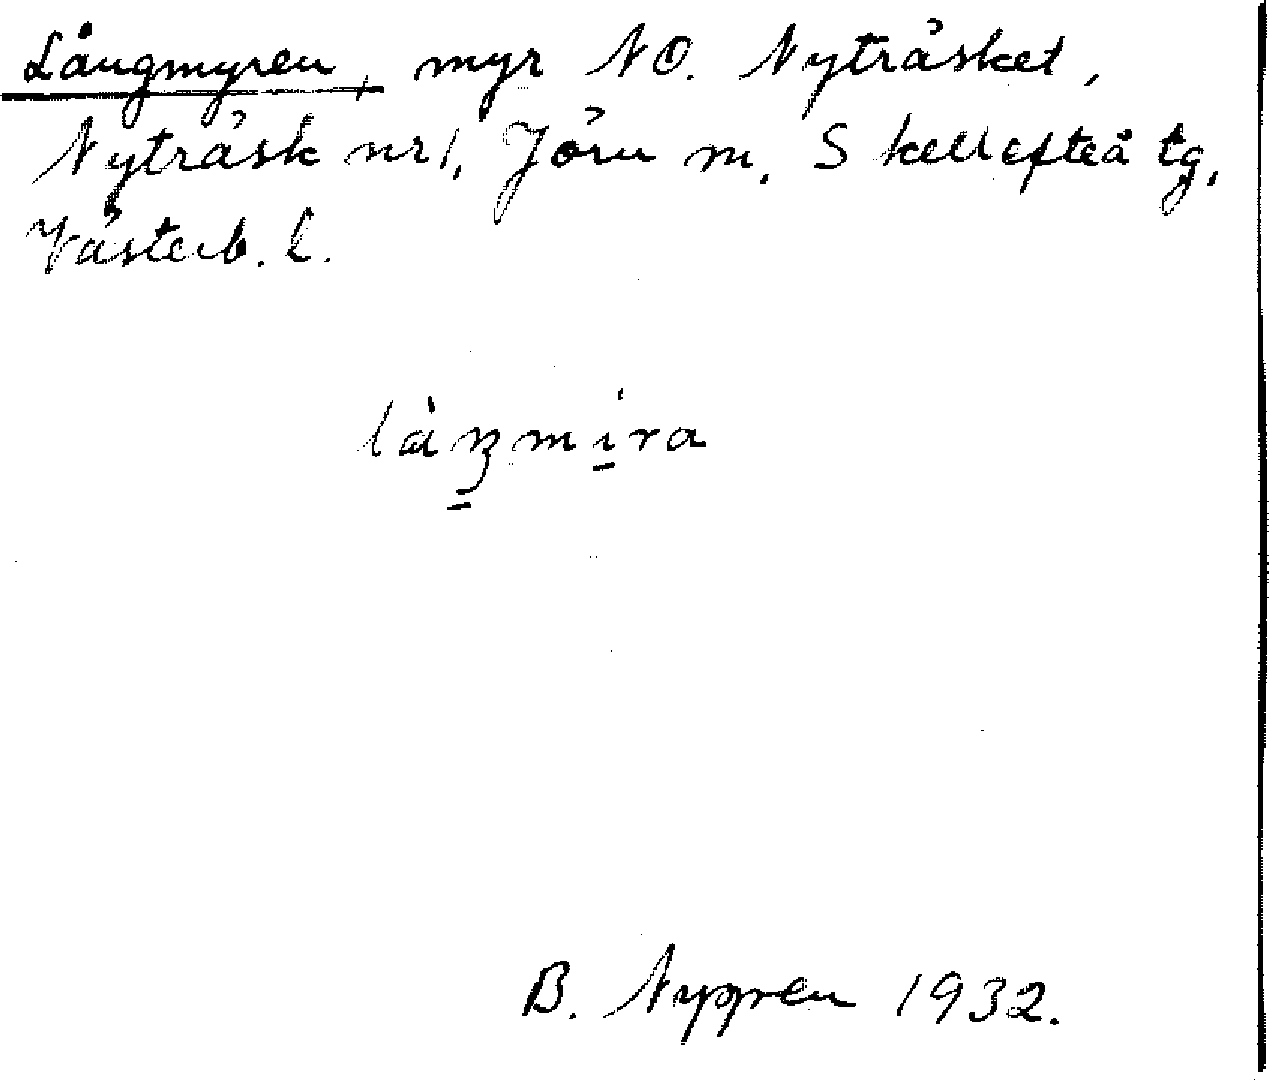 Långmyren, myr NO. Nyträsket,
Nyträsk nr 1, Jörn sn, Skellefteå tg,
Västerb. l.
làŋmira
B. Nygren 1932.